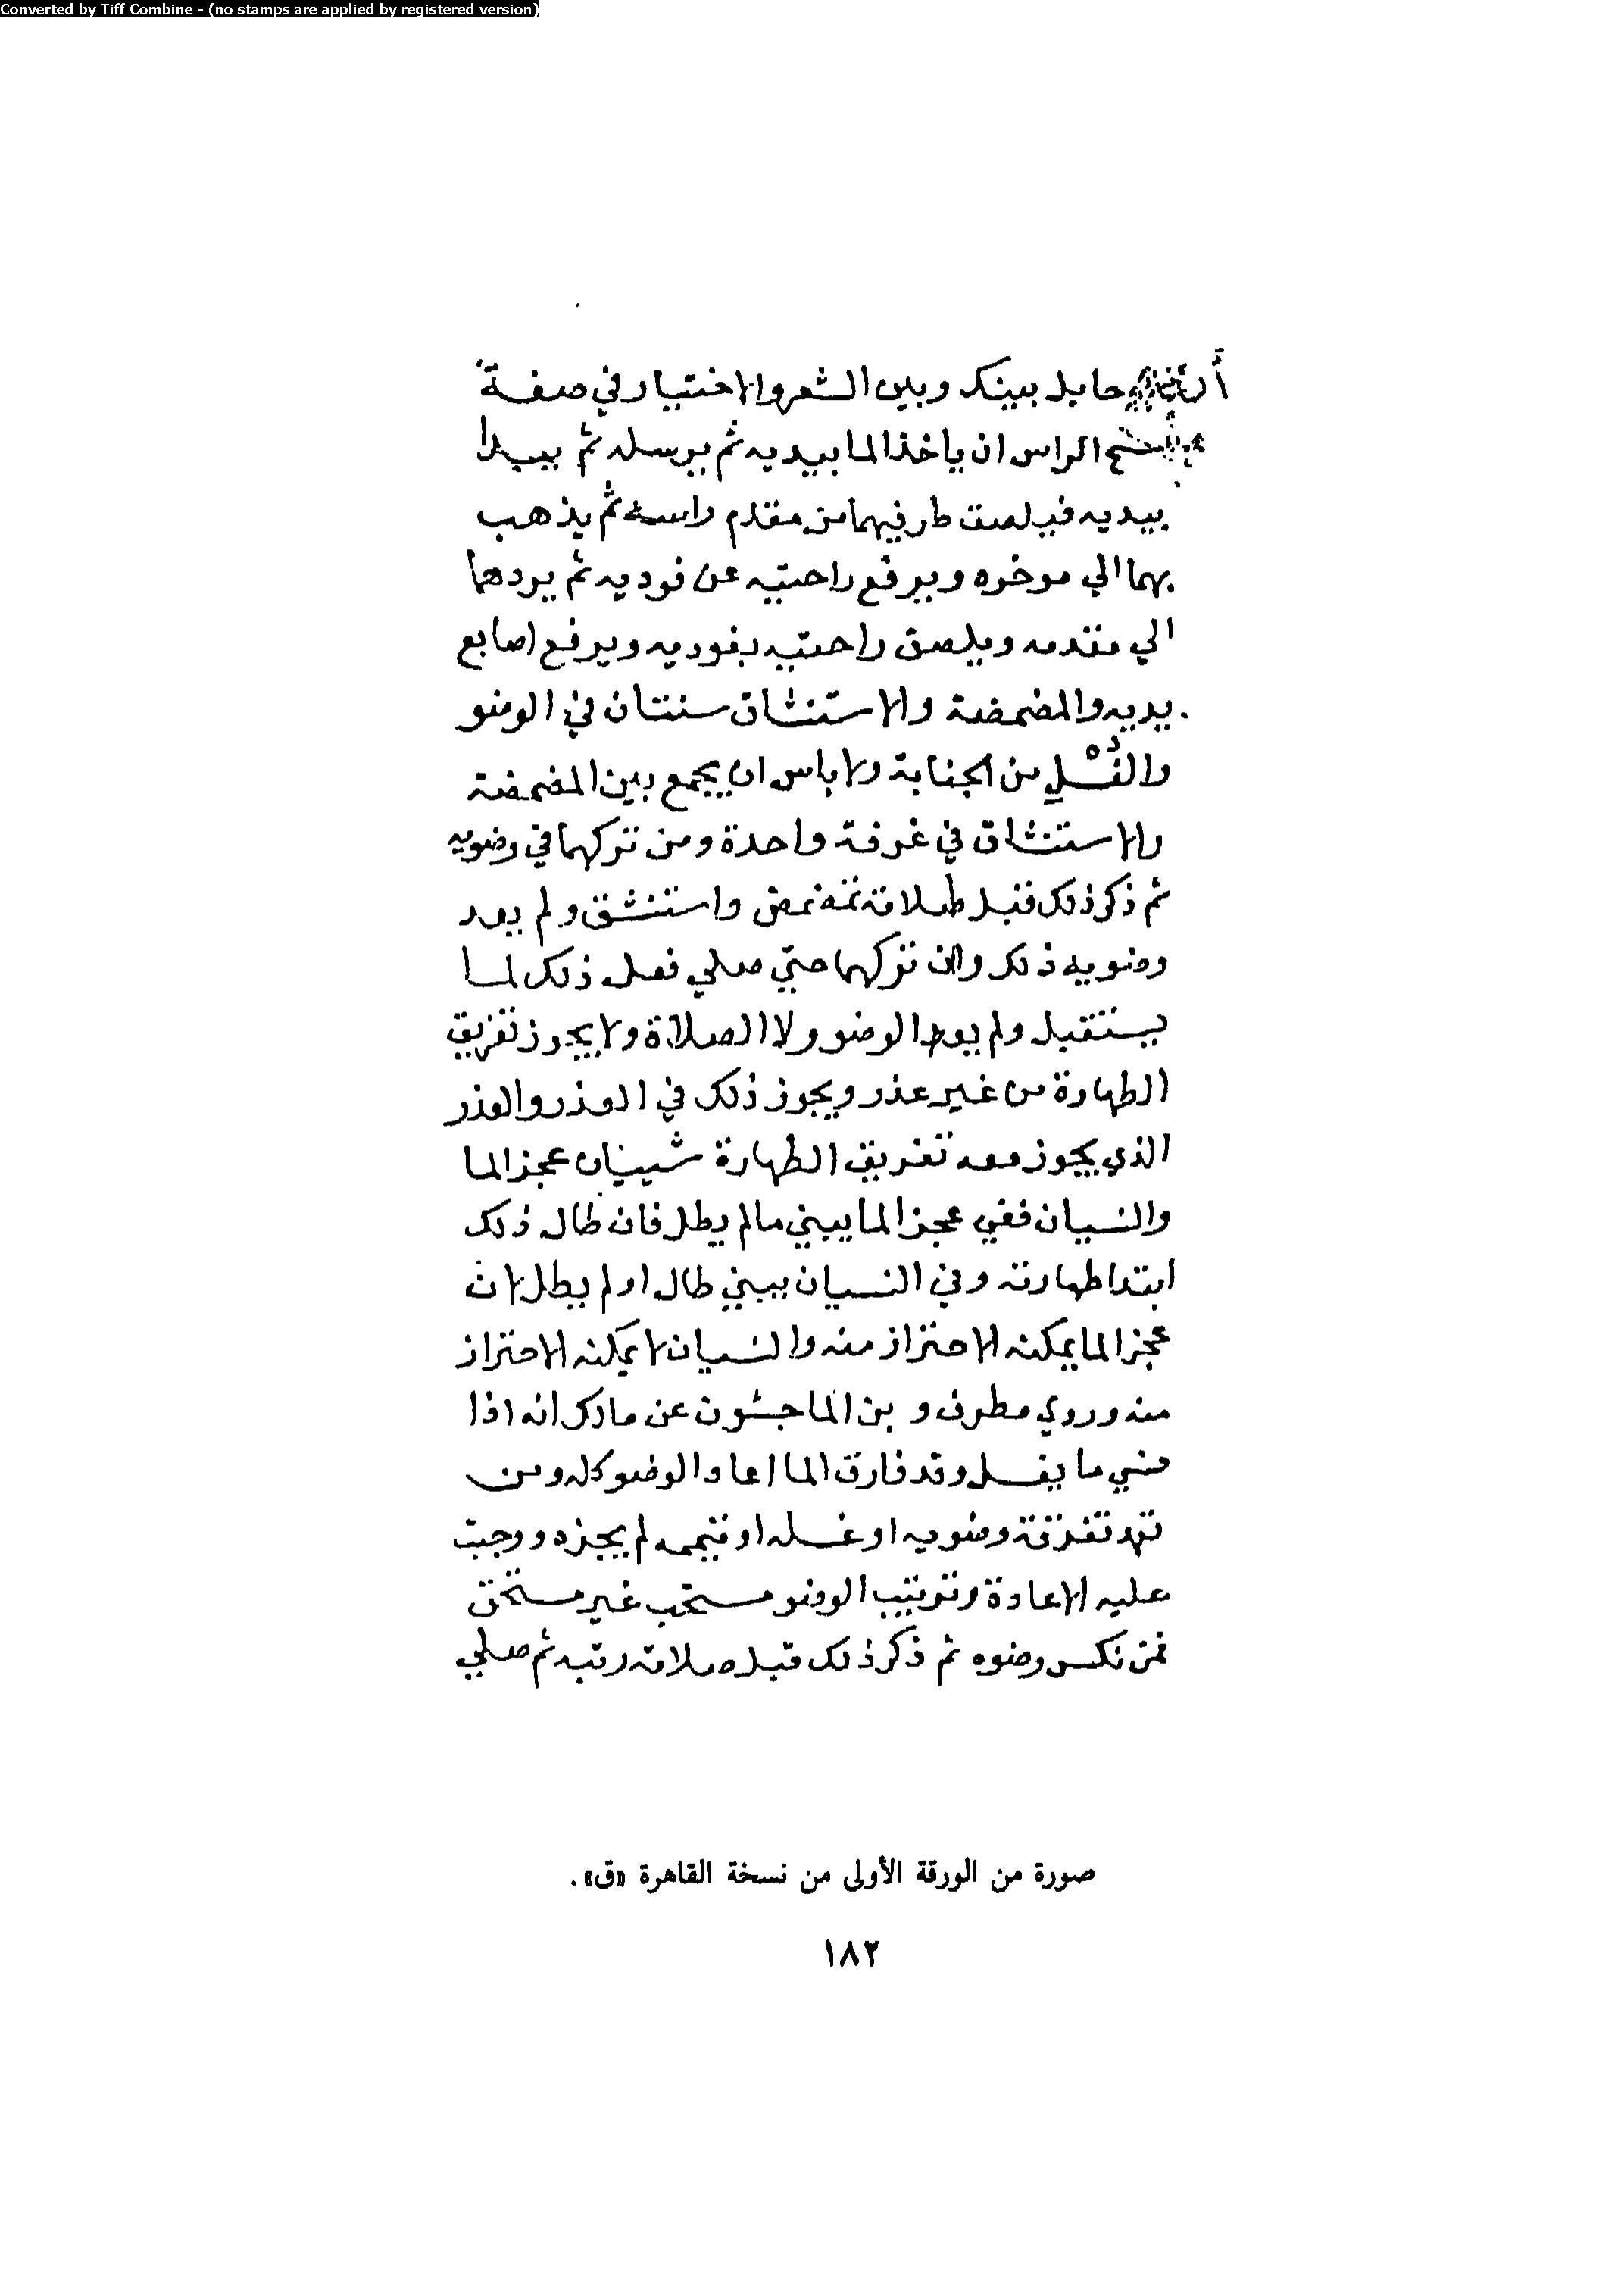 Converted by Tiff Combine - (no stamps are applied by registered version)
حايل بينك وبين الشعر والاختيار في صفة
الراس ان ياخذ الما بيديه ثم يرسله ثم يبدا
بيديه فيلصق طرفيهما من مقدم راسه ثم يذهب
بهما الي موخره ويرفع راحتيه عن فوديه ثم يردهما
الي مقدمه ويلصق راحتيه بفوديه ويرفع اصابع
يديه والمضمضة والاستنشاق سنتان في الوضو
والغُسْلِ من الجنابة ولا باس ان يجمع بين المضمضة
والاستنشاق في غرفة واحدة ومن تركهما في وضويه
ثم ذكر ذلك قبل صلاته تمضمض واستنشق ولم يعد
وضويه ذلك وان تركهما حتي صلي فعل ذلك لما
يستقبل ولم يعد الوضو ولا الصلاة ولا يجوز تفريق
الطهارة من غير عذر ويجوز ذلك في العذر والعذر
الذي يجوز معه تفريق الطهارة شييان عجز الما
والنسيان ففي عجز الما يبني ما لم يطل فان طال ذلك
ابتدا طهارته وفي النسيان يبني طال او لم يطل لان
عجز الما يمكنه الاحتراز منه والنسيان لا يمكنه الاحتراز
منه وروي مطرف و بن الماجشون عن مالك انه اذا
نسي ما يغسل وقد فارق الما اعاد الوضو كله ومن
تعمد تفرقة وضويه او غسله او تيممه لم يجزه ووجبت
عليه الاعادة وترتيب الوضو مستحب غير مستحق
فمن نكس وضوه ثم ذكر ذلك قبل صلاته رتبه ثم صلي
صورة من الورقة الأولى من نسخة القاهرة «ق».
١٨٢